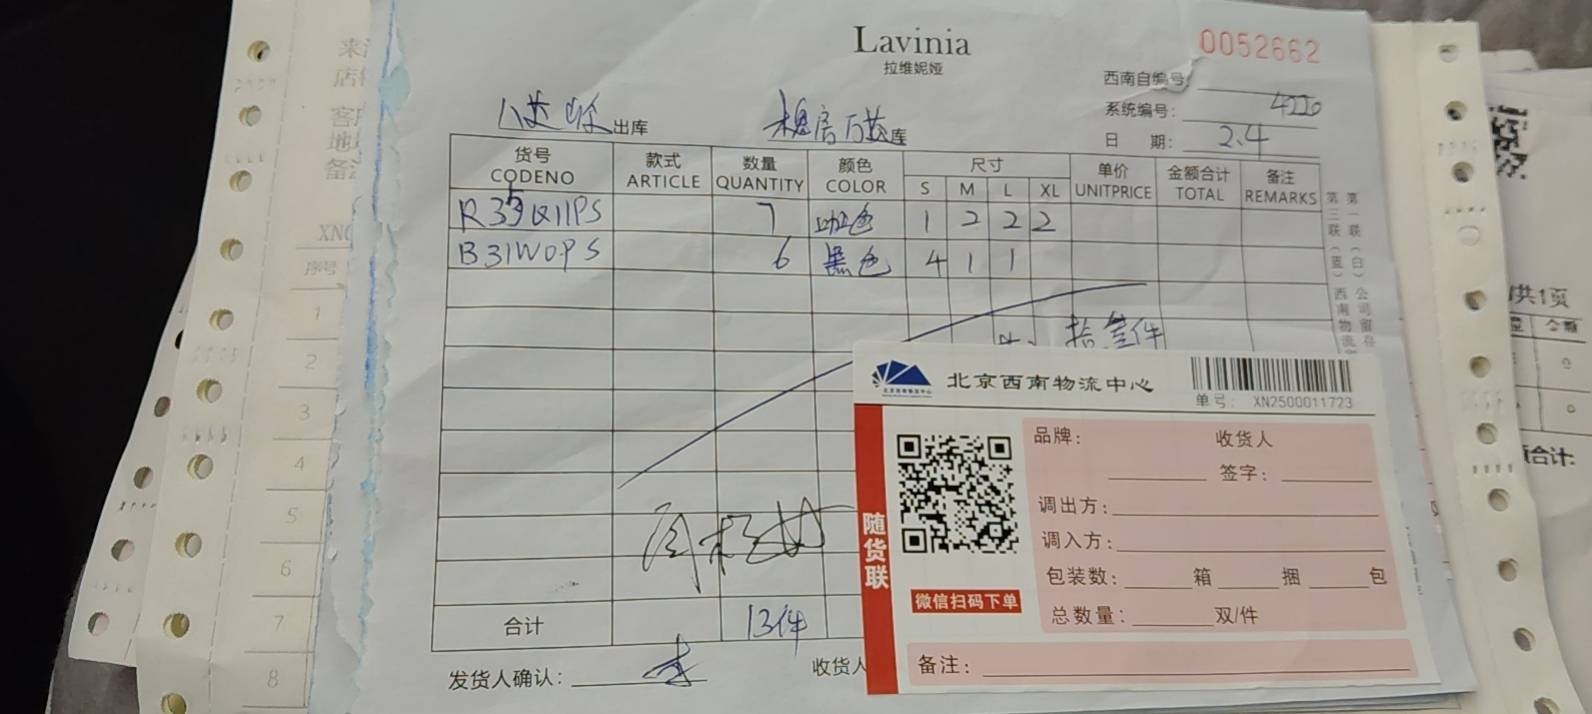 Lavinia
拉维妮娅
0052662
西南自编号:
系统编号: 4220
日 期: 2.4
出库
库
货号 款式 数量 颜色 尺寸 单价 金额合计 备注
CODENO ARTICLE QUANTITY COLOR S M L XL UNITPRICE TOTAL REMARKS
7 咖色 1 2 2 2
B31W0PS 6 黑色 4 1 1
合计 13件
发货人确认:
收货人
北京西南物流中心
单号: XN2500011723
随货联
微信扫码下单
品牌: 收货人
签字:
调出方:
调入方:
包装数: 箱 捆 包
总数量: 双/件
备注:
第一联(白)公司留存
第三联(蓝)西南物流
XN
序号
1
2
3
4
5
6
7
8
共1页
金额
合计: